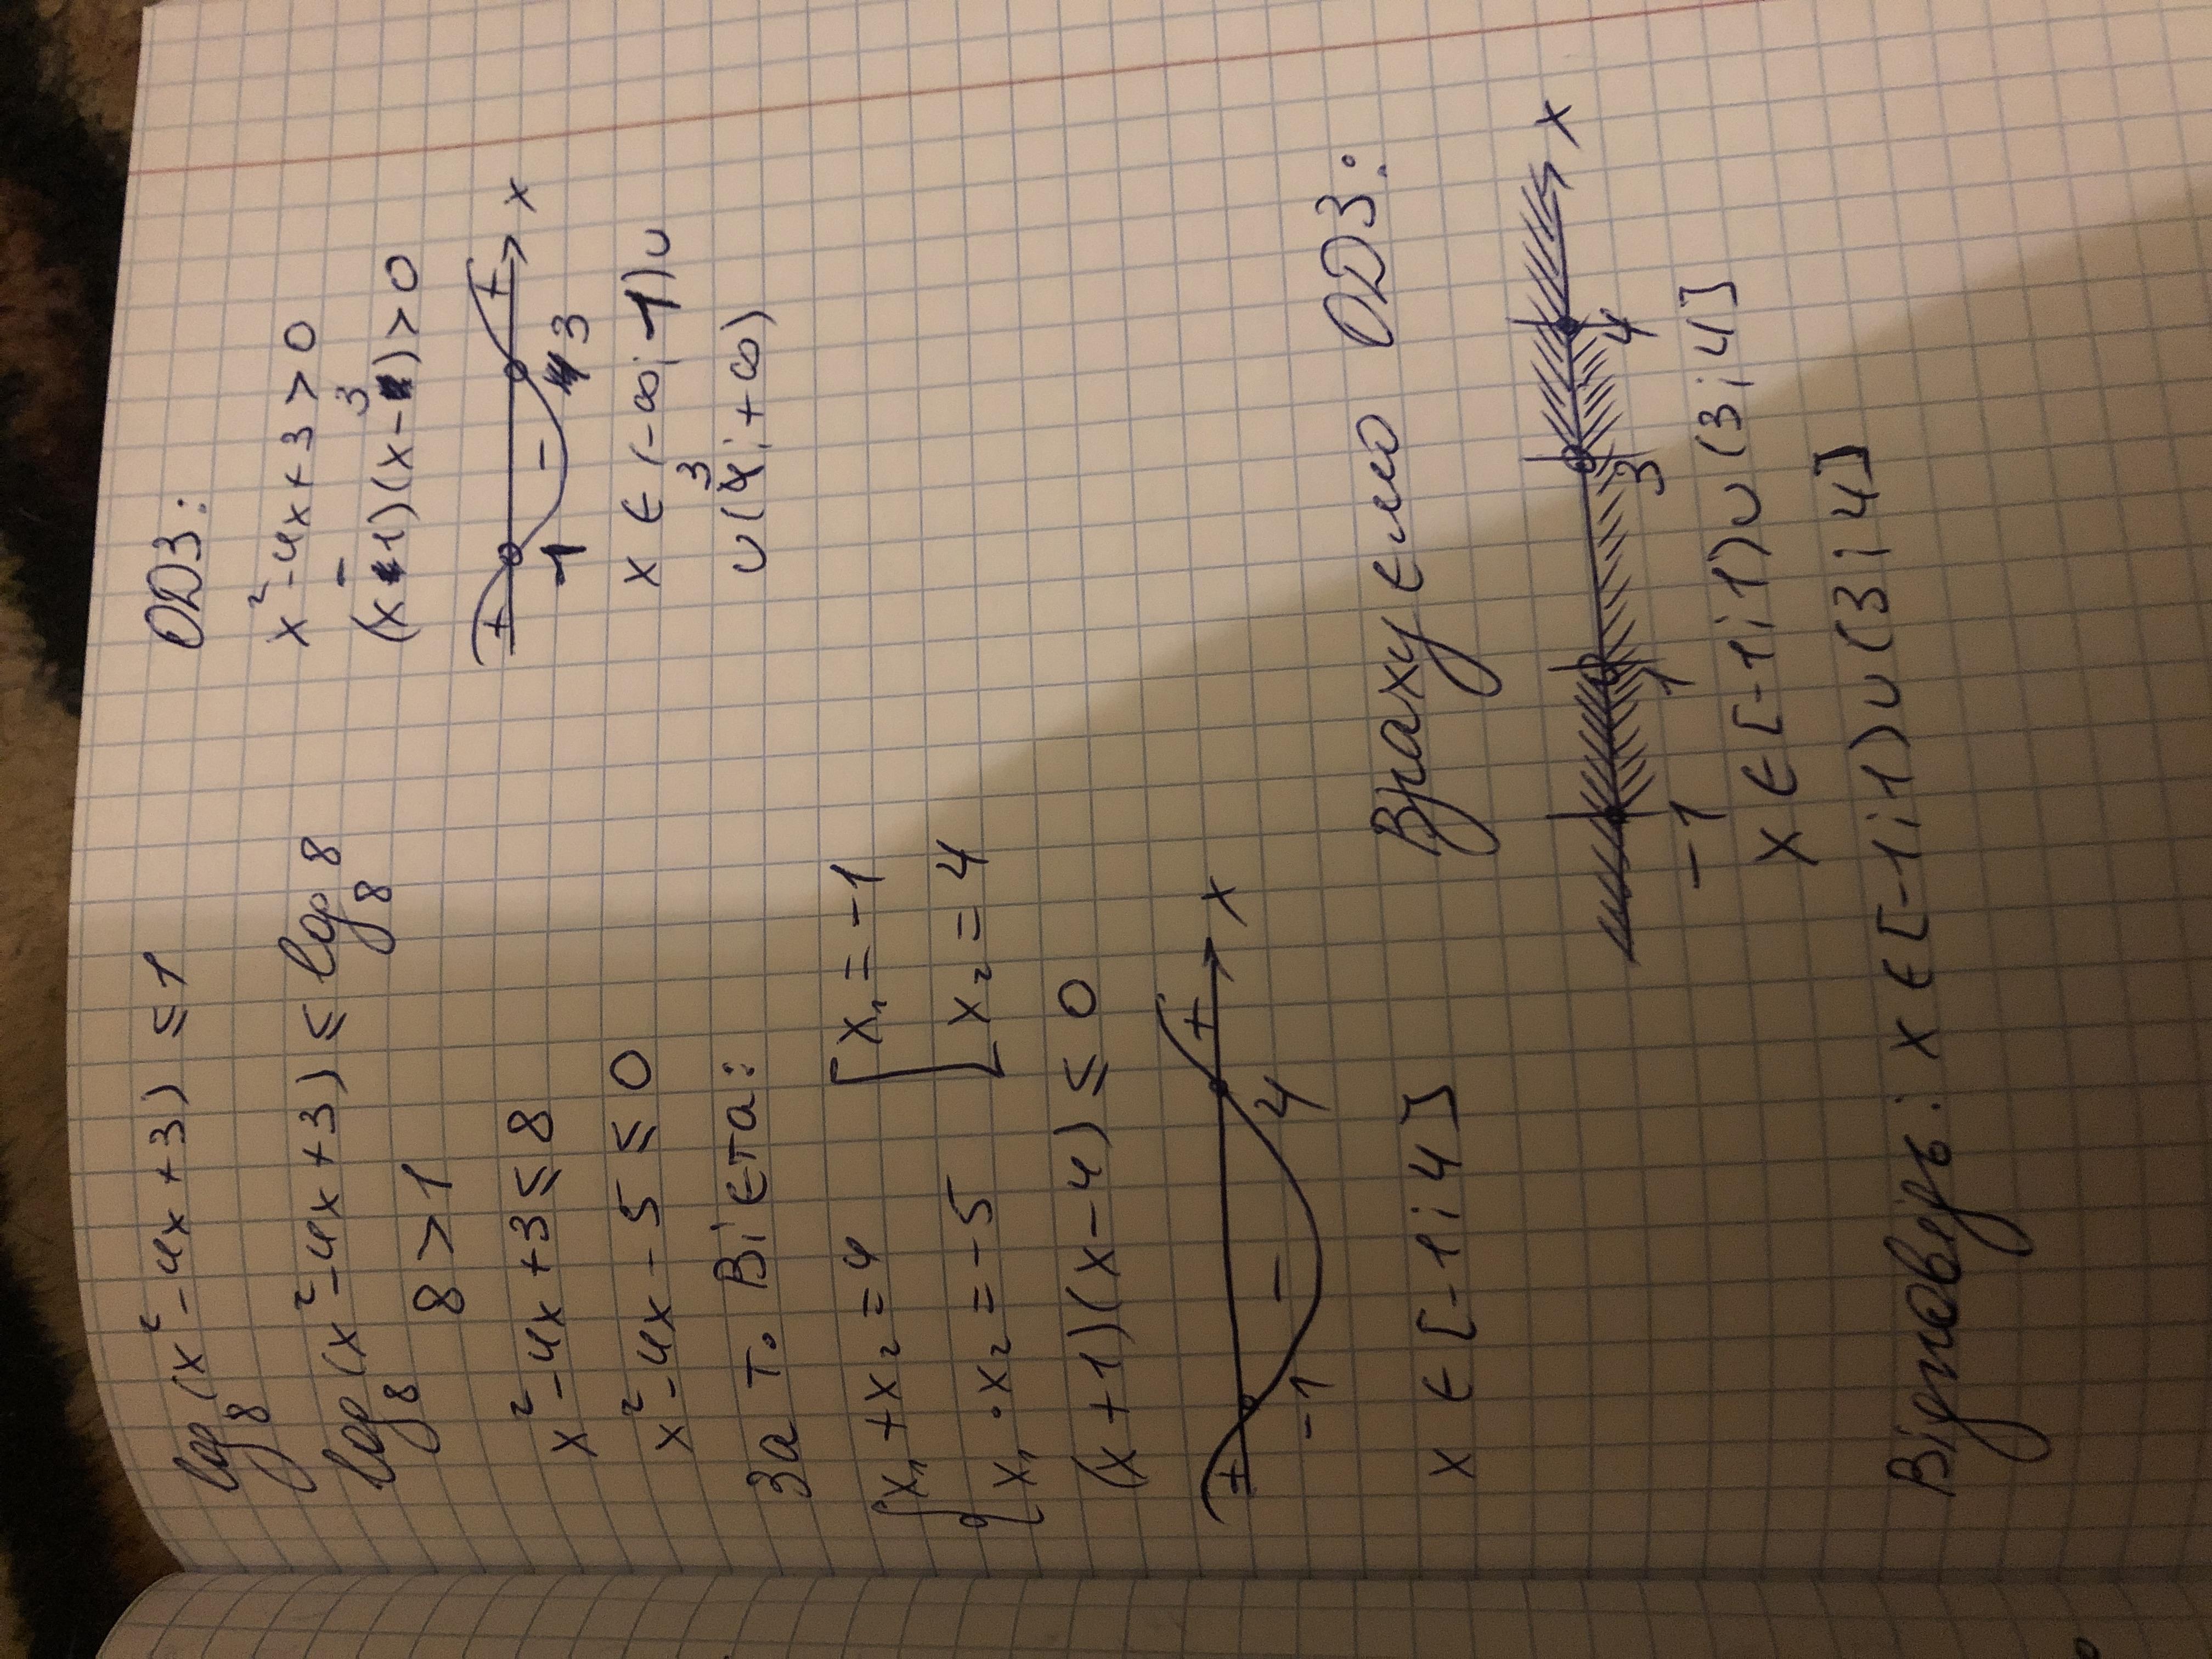 log₈(x²-4x+3) ≤ 1
log₈(x²-4x+3) ≤ log₈8
8 > 1
x²-4x+3 ≤ 8
x²-4x-5 ≤ 0
За т. Вієта:
{x₁+x₂=4 [x₁=-1
{x₁·x₂=-5 [x₂=4
(x+1)(x-4) ≤ 0
+ - + x
-1 4
x ∈ [-1;4]
ОДЗ:
x²-4x+3>0
(x-1)(x-3)>0
+ - + x
1 3
x ∈ (-∞;1)∪
∪(3;+∞)
Врахуємо ОДЗ:
x
-1 1 3 4
x ∈ [-1;1)∪(3;4]
Відповідь: x ∈ [-1;1)∪(3;4]